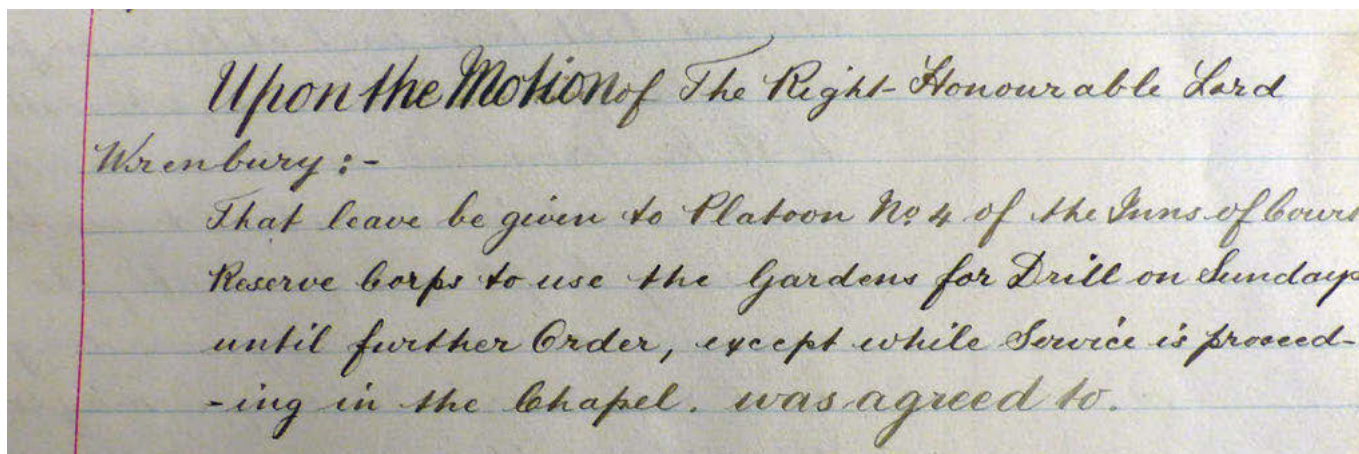 Upon the Motion of The Right Honourable Lord
Wrenbury:-
That leave be given to Platoon No 4 of the Inns of Court
Reserve Corps to use the Gardens for Drill on Sundays
until further Order, except while Service is proceed-
-ing in the Chapel. was agreed to.